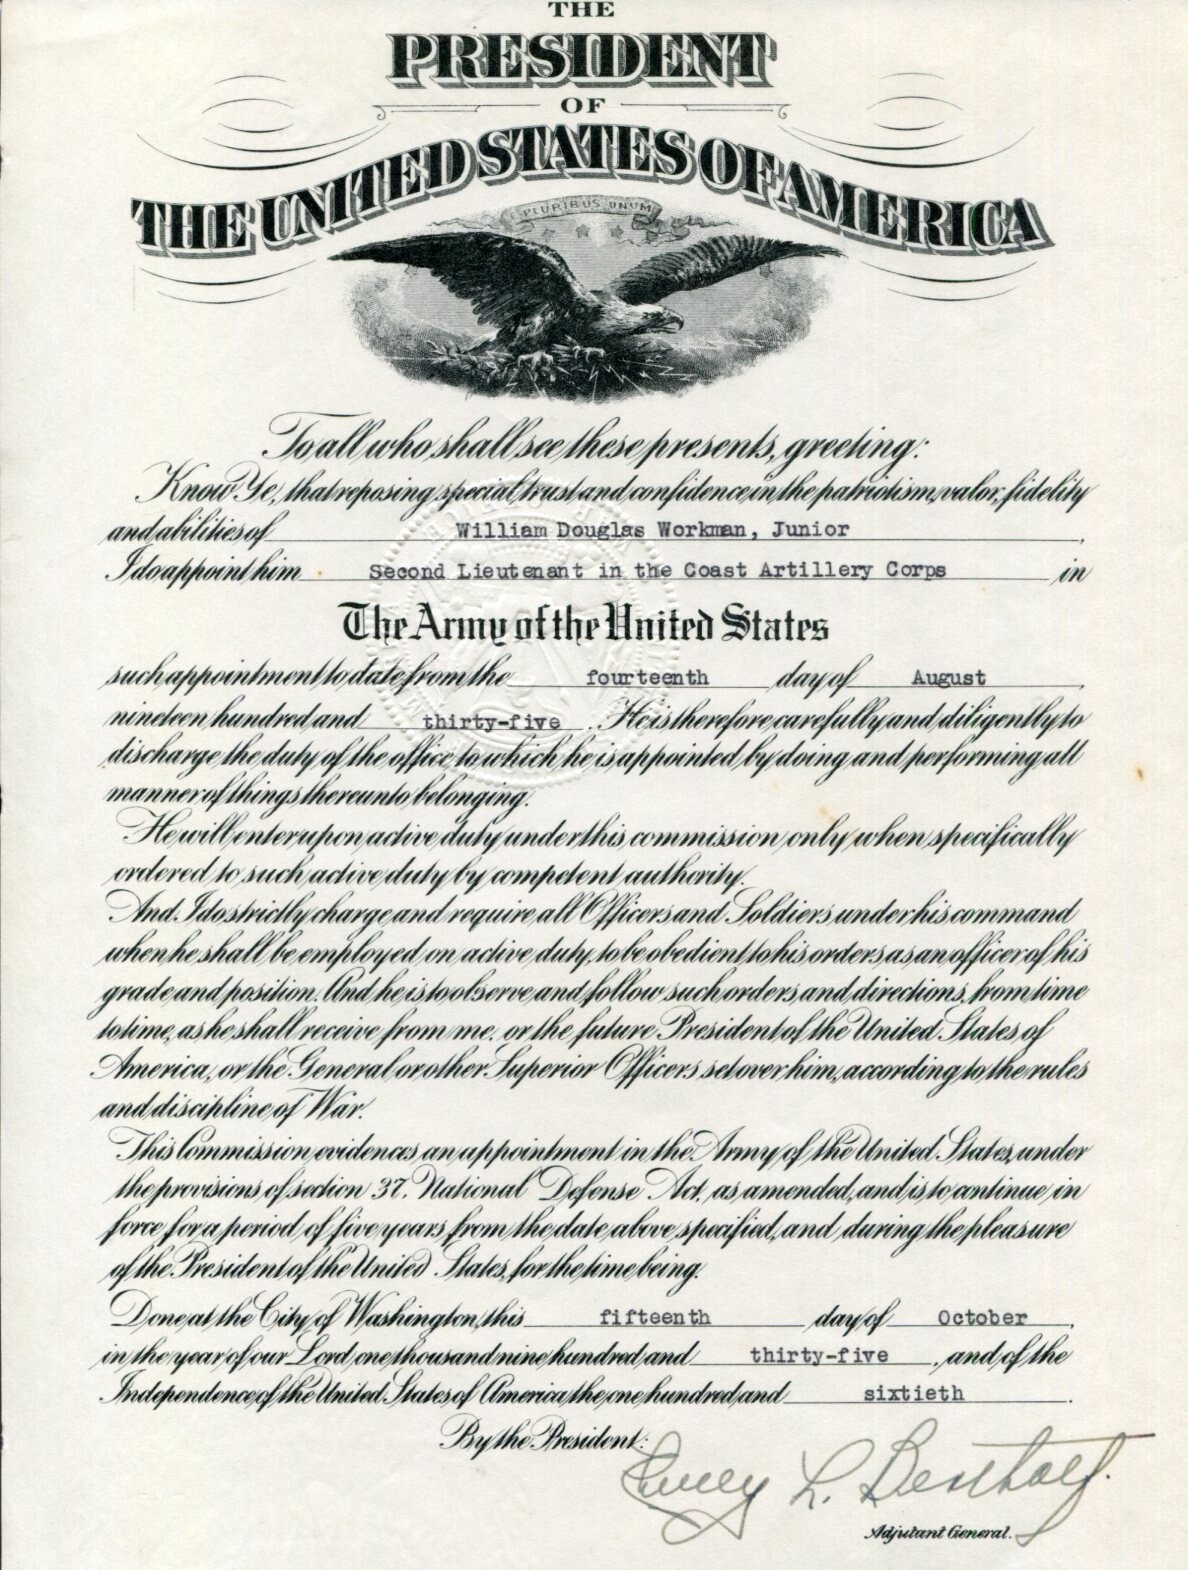 THE
PRESIDENT
OF
THE UNITED STATES OF AMERICA
PLURIBUS UNUM
To all who shall see these presents, greeting:
Know Ye, that reposing special trust and confidence in the patriotism, valor, fidelity
and abilities of William Douglas Workman, Junior ,
I do appoint him Second Lieutenant in the Coast Artillery Corps in
The Army of the United States
such appointment to date from the fourteenth day of August ,
nineteen hundred and thirty-five . He is therefore carefully and diligently to
discharge the duty of the office to which he is appointed by doing and performing all
manner of things thereunto belonging.
He will enter upon active duty under this commission only when specifically
ordered to such active duty by competent authority.
And I do strictly charge and require all Officers and Soldiers under his command
when he shall be employed on active duty, to be obedient to his orders as an officer of his
grade and position. And he is to observe and follow such orders and directions, from time
to time, as he shall receive from me, or the future President of the United States of
America, or the General or other Superior Officers set over him, according to the rules
and discipline of War.
This Commission evidences an appointment in the Army of the United States, under
the provisions of section 37, National Defense Act, as amended, and is to continue in
force for a period of five years from the date above specified, and during the pleasure
of the President of the United States, for the time being.
Done at the City of Washington, this fifteenth day of October ,
in the year of our Lord one thousand nine hundred and thirty-five , and of the
Independence of the United States of America the one hundred and sixtieth .
By the President:
L.
Adjutant General.